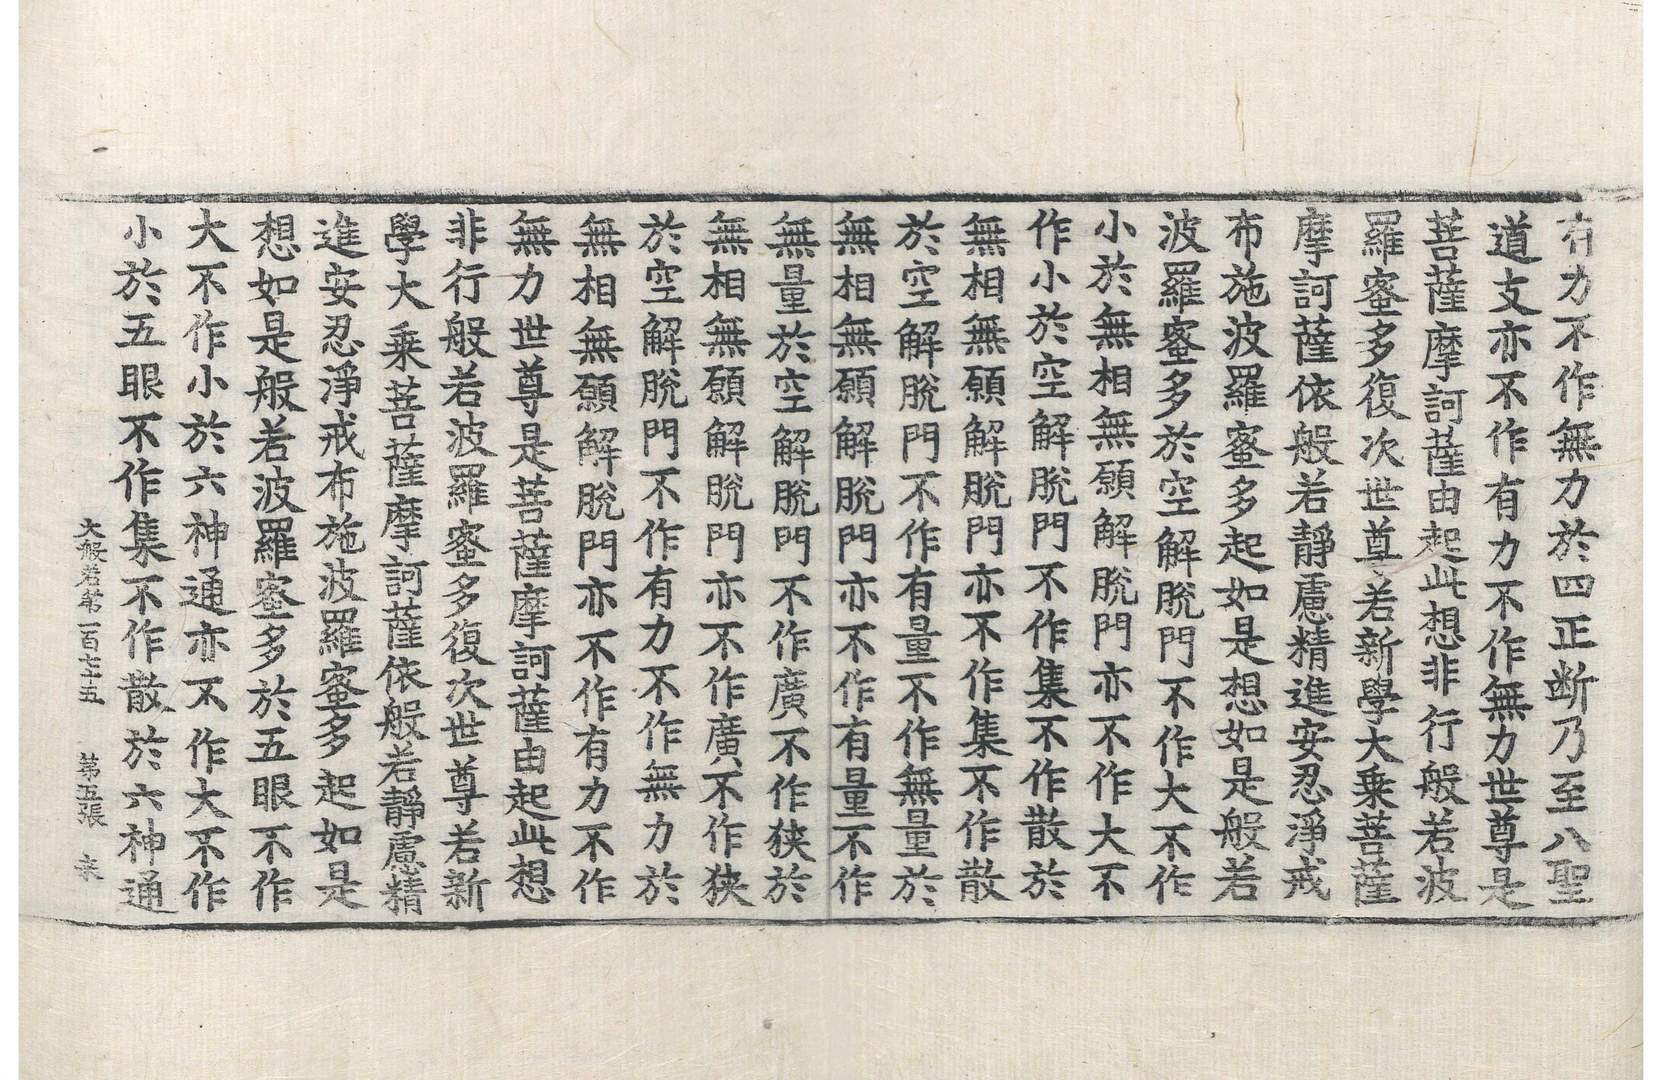 有力不作無力於四正斷乃至八聖
道支亦不作有力不作無力世尊是
菩薩摩訶薩由起此想非行般若波
羅蜜多復次世尊若新學大乘菩薩
摩訶薩依般若靜慮精進安忍淨戒
布施波羅蜜多起如是想如是般若
波羅蜜多於空解脫門不作大不作
小於無相無願解脫門亦不作大不
作小於空解脫門不作集不作散於
無相無願解脫門亦不作集不作散
於空解脫門不作有量不作無量於
無相無願解脫門亦不作有量不作
無量於空解脫門不作廣不作狹於
無相無願解脫門亦不作廣不作狹
於空解脫門不作有力不作無力於
無相無願解脫門亦不作有力不作
無力世尊是菩薩摩訶薩由起此想
非行般若波羅蜜多復次世尊若新
學大乘菩薩摩訶薩依般若靜慮精
進安忍淨戒布施波羅蜜多起如是
想如是般若波羅蜜多於五眼不作
大不作小於六神通亦不作大不作
小於五眼不作集不作散於六神通
大般若第一百七十五 第五張 来